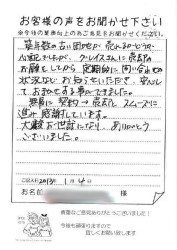 お客様の声をお聞かせ下さい
※今後の業務向上の為ご意見をお聞かせください。
築年数の古い団地が売れるかどうか
心配でしたが、クレイスさんに売却の
お願いをしてから定期的に問い合わせ
状況などお知らせいただき、安心して
おまかせする事ができました。
無事に契約→売却もスムーズに
進み感謝しています。
大変お世話になり、ありがとう
ございました。
ご記入日2013年1月4日
お名前
様
貴重なご意見ありがとうございました!
今後も頑張りますので
宜しくお願い致します